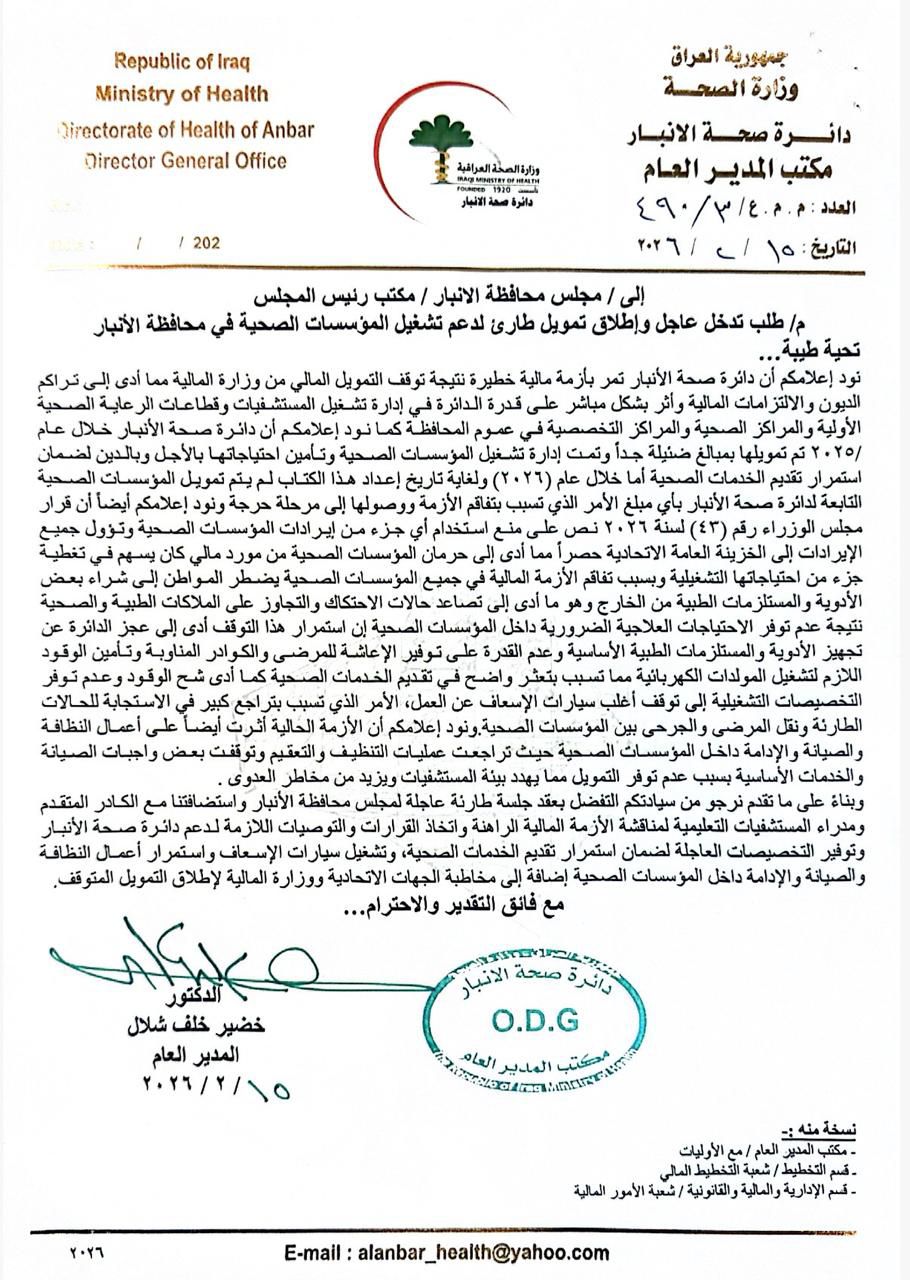 Republic of Iraq
Ministry of Health
Directorate of Health of Anbar
Director General Office
/ / 202
وزارة الصحة العراقية
IRAQI MINISTRY OF HEALTH
FOUNDED 1920 تأسست
دائرة صحة الانبار
جمهورية العراق
وزارة الصحـــة
دائـــرة صحـــة الانبـــار
مكتب المديـر العـام
العدد : م . م . ع / ٣ / ٤٩٠
التاريخ : ١٥ / ٢ / ٢٠٢٦
إلى / مجلس محافظة الانبار / مكتب رئيس المجلس
م/ طلب تدخل عاجل وإطلاق تمويل طارئ لدعم تشغيل المؤسسات الصحية في محافظة الأنبار
تحية طيبة...
نود إعلامكم أن دائرة صحة الأنبار تمر بأزمة مالية خطيرة نتيجة توقف التمويل المالي من وزارة المالية مما أدى إلى تراكم
الديون والالتزامات المالية وأثر بشكل مباشر على قدرة الدائرة في إدارة تشغيل المستشفيات وقطاعات الرعاية الصحية
الأولية والمراكز الصحية والمراكز التخصصية في عموم المحافظة كما نود إعلامكم أن دائرة صحة الأنبار خلال عام
/٢٠٢٥ تم تمويلها بمبالغ ضئيلة جداً وتمت إدارة تشغيل المؤسسات الصحية وتأمين احتياجاتها بالأجل وبالدين لضمان
استمرار تقديم الخدمات الصحية أما خلال عام (٢٠٢٦) ولغاية تاريخ إعداد هذا الكتاب لم يتم تمويل المؤسسات الصحية
التابعة لدائرة صحة الأنبار بأي مبلغ الأمر الذي تسبب بتفاقم الأزمة ووصولها إلى مرحلة حرجة ونود إعلامكم أيضاً أن قرار
مجلس الوزراء رقم (٤٣) لسنة ٢٠٢٦ نص على منع استخدام أي جزء من إيرادات المؤسسات الصحية وتؤول جميع
الإيرادات إلى الخزينة العامة الاتحادية حصراً مما أدى إلى حرمان المؤسسات الصحية من مورد مالي كان يسهم في تغطية
جزء من احتياجاتها التشغيلية وبسبب تفاقم الأزمة المالية في جميع المؤسسات الصحية يضطر المواطن إلى شراء بعض
الأدوية والمستلزمات الطبية من الخارج وهو ما أدى إلى تصاعد حالات الاحتكاك والتجاوز على الملاكات الطبية والصحية
نتيجة عدم توفر الاحتياجات العلاجية الضرورية داخل المؤسسات الصحية إن استمرار هذا التوقف أدى إلى عجز الدائرة عن
تجهيز الأدوية والمستلزمات الطبية الأساسية وعدم القدرة على توفير الإعاشة للمرضى والكوادر المناوبة وتأمين الوقود
اللازم لتشغيل المولدات الكهربائية مما تسبب بتعثر واضح في تقديم الخدمات الصحية كما أدى شح الوقود وعدم توفر
التخصيصات التشغيلية إلى توقف أغلب سيارات الإسعاف عن العمل، الأمر الذي تسبب بتراجع كبير في الاستجابة للحالات
الطارئة ونقل المرضى والجرحى بين المؤسسات الصحية.ونود إعلامكم أن الأزمة الحالية أثرت أيضاً على أعمال النظافة
والصيانة والإدامة داخل المؤسسات الصحية حيث تراجعت عمليات التنظيف والتعقيم وتوقفت بعض واجبات الصيانة
والخدمات الأساسية بسبب عدم توفر التمويل مما يهدد بيئة المستشفيات ويزيد من مخاطر العدوى .
وبناءً على ما تقدم نرجو من سيادتكم التفضل بعقد جلسة طارئة عاجلة لمجلس محافظة الأنبار واستضافتنا مع الكادر المتقدم
ومدراء المستشفيات التعليمية لمناقشة الأزمة المالية الراهنة واتخاذ القرارات والتوصيات اللازمة لدعم دائرة صحة الأنبار
وتوفير التخصيصات العاجلة لضمان استمرار تقديم الخدمات الصحية، وتشغيل سيارات الإسعاف واستمرار أعمال النظافة
والصيانة والإدامة داخل المؤسسات الصحية إضافة إلى مخاطبة الجهات الاتحادية ووزارة المالية لإطلاق التمويل المتوقف.
مع فائق التقدير والاحترام...
دائرة صحة الانبار
O.D.G
مكتب المدير العام
the Republic of Iraq Ministry of Health
الدكتور
خضير خلف شلال
المدير العام
١٥ / ٢ / ٢٠٢٦
نسخة منه :-
- مكتب المدير العام / مع الأوليات
- قسم التخطيط / شعبة التخطيط المالي
- قسم الإدارية والمالية والقانونية / شعبة الأمور المالية
٢٠٢٦
E-mail : alanbar_health@yahoo.com